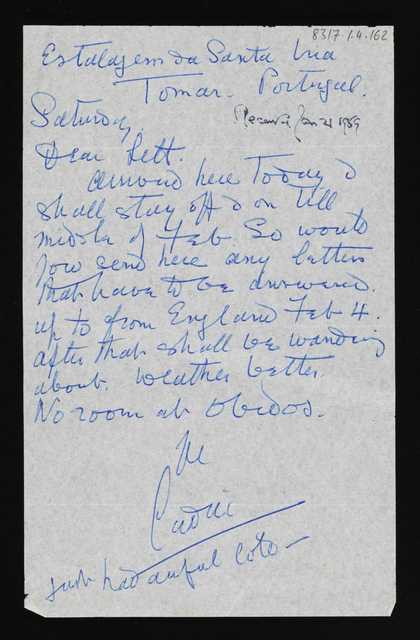 8317.1.4.162
Estalagem da Santa Iria
Tomar. Portugal.
Saturday,
Received Jan 21 1969
Dear Lett.
arrived here Today &
shall stay off & on till
middle of Feb. So would
you send here any letters
that have to be answered.
up to from England Feb 4.
after that shall be wandering
about. Weather better.
No room at Obidos.
Cedric
Just had awful